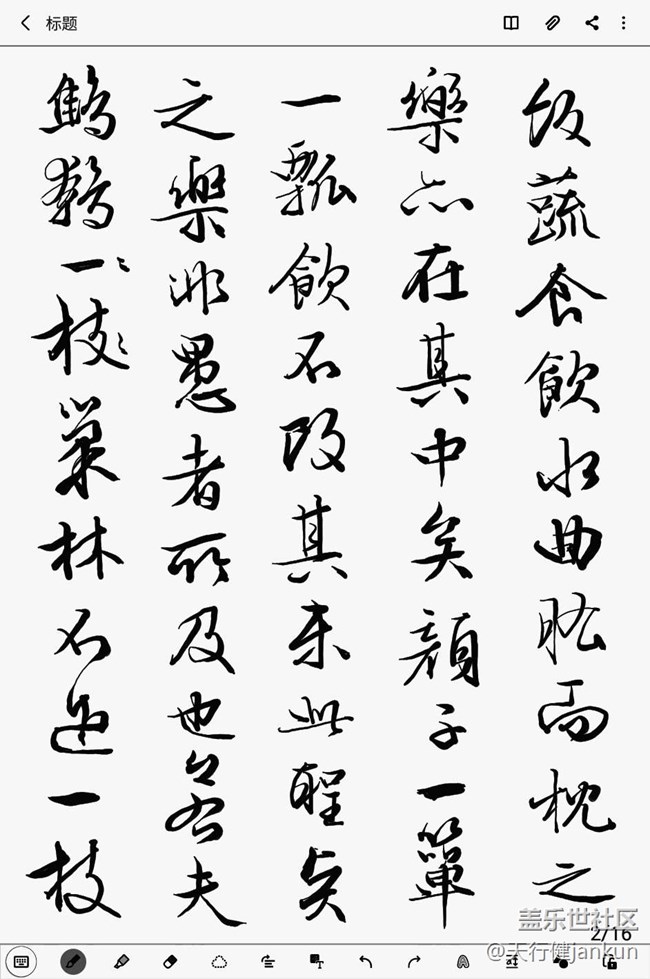 标题
饭蔬食飲水曲肱而枕之
樂亦在其中矣顔子一簞
一瓢飲不改其乐此聖贤
之樂非愚者所及也若夫
鷦鷯一枝巢林不過一枝
盖乐世社区
2/16
@天行健jankun